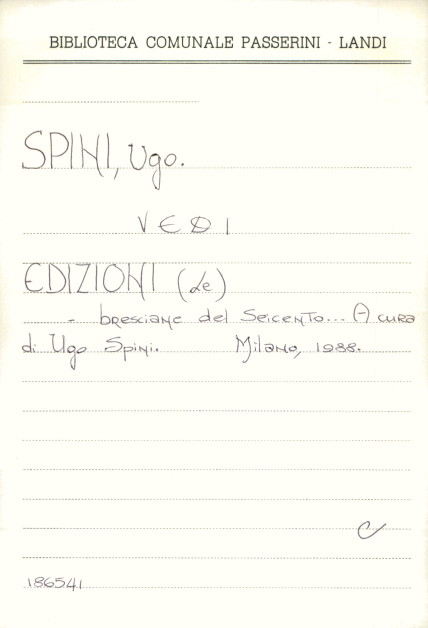 BIBLIOTECA COMUNALE PASSERINI - LANDI
SPINI, Ugo.
VEDI
EDIZIONI (Le)
- bresciane del Seicento... A cura
di Ugo Spini. Milano, 1988.
C
186541